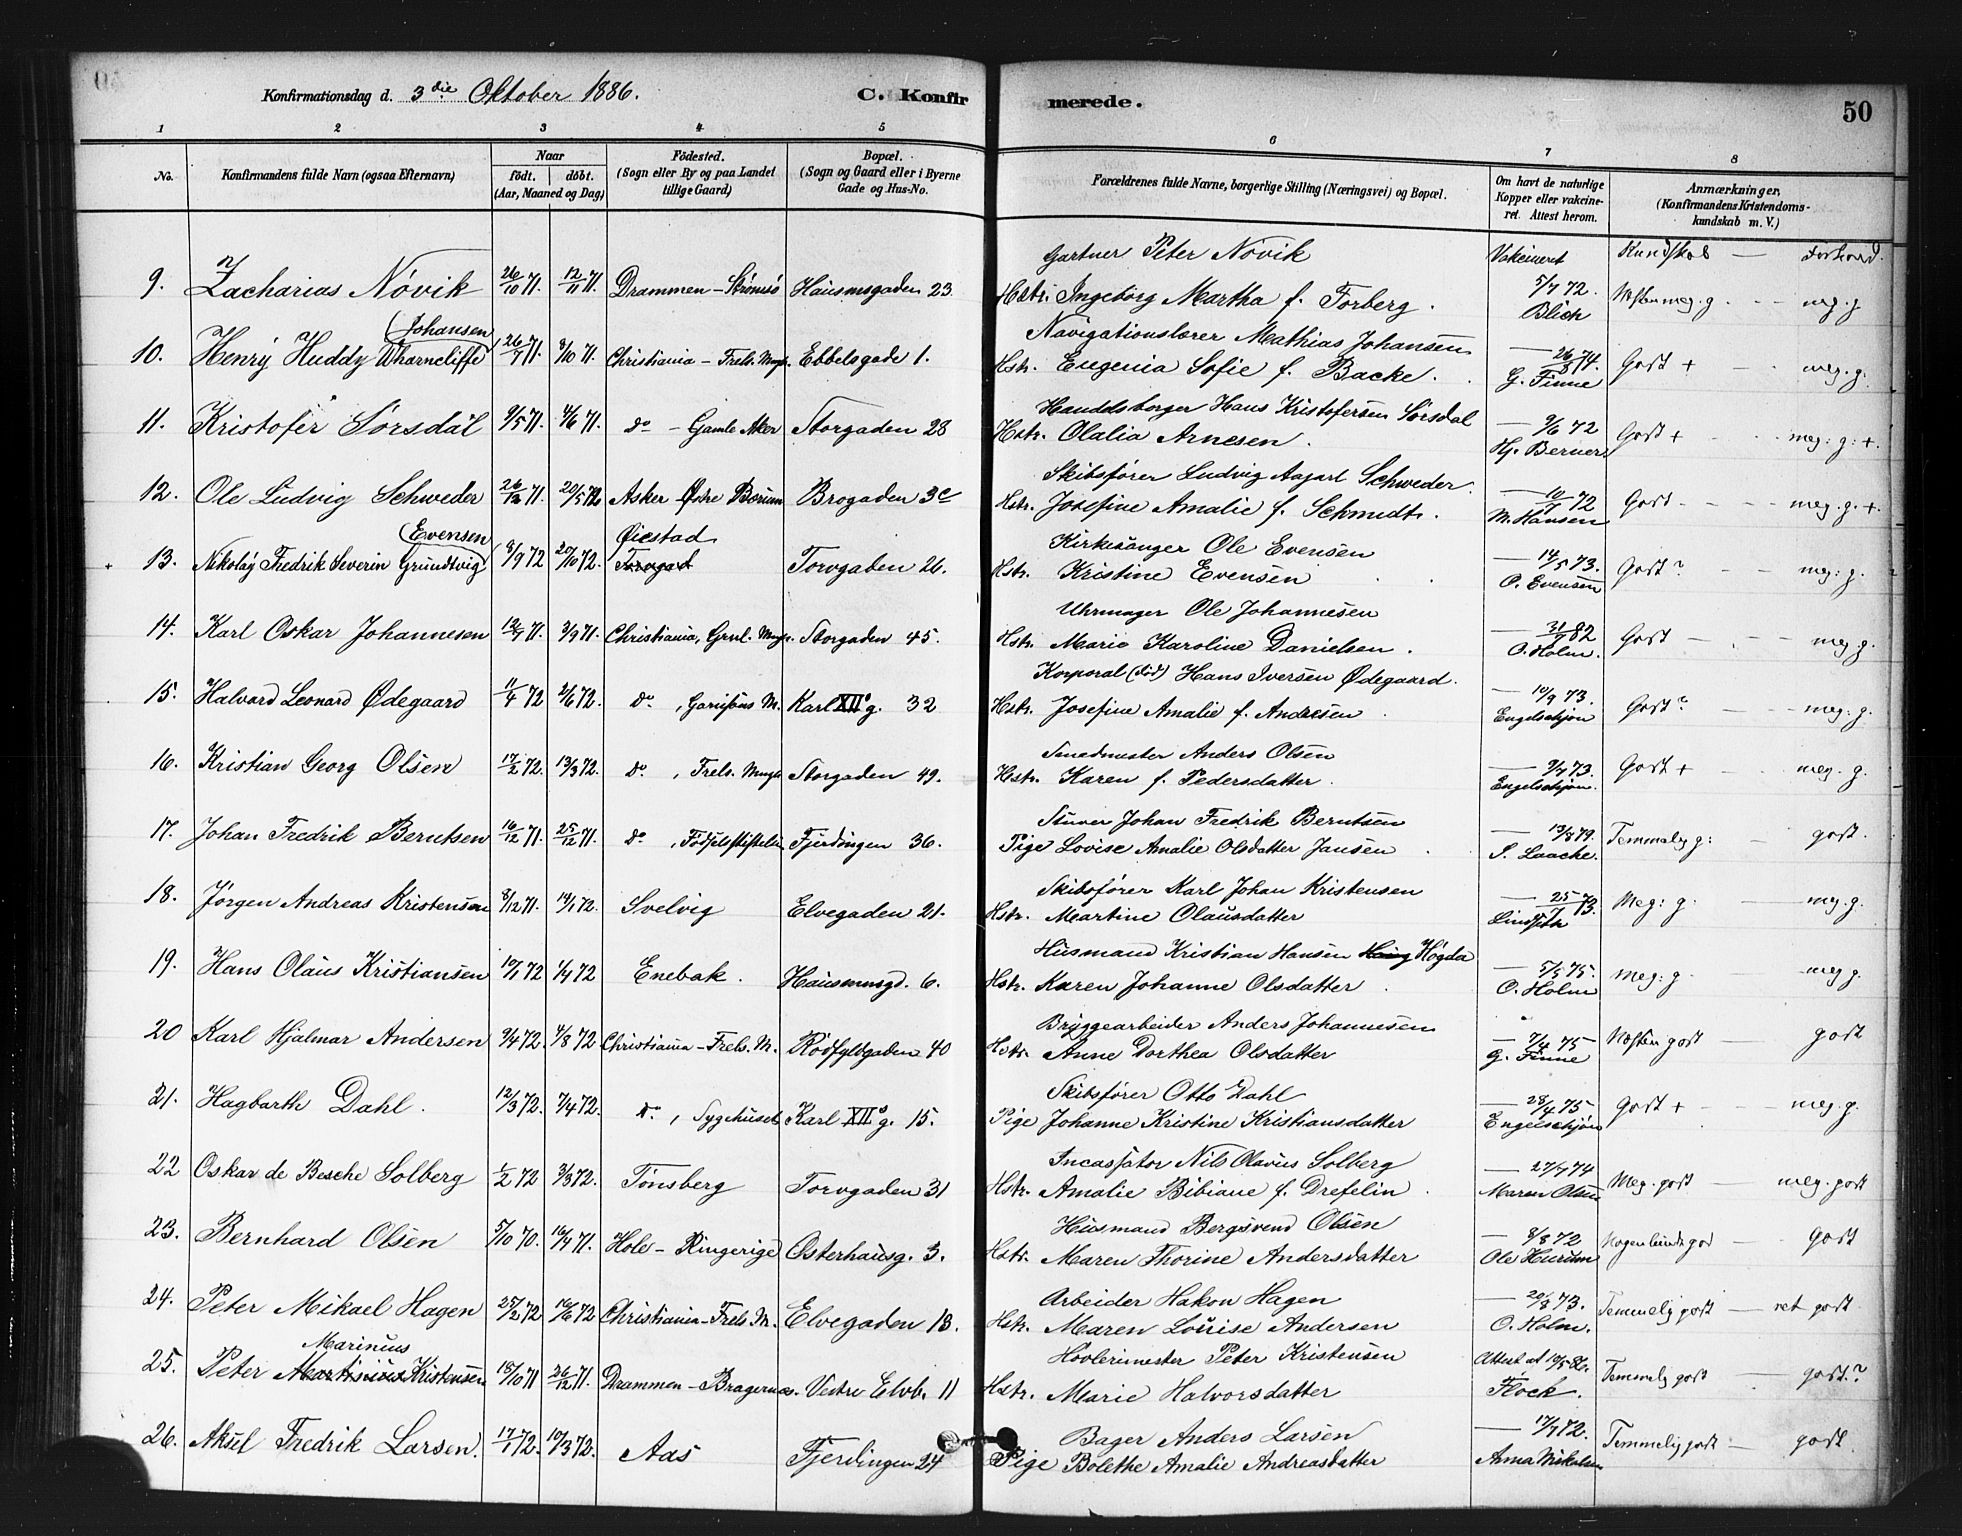 Konfirmationsdag d. 3die Oktober 1886. C. Konfir merede. 50
1 2 3 4 5 6 7 8
No. Konfirmandens fulde Navn (ogsaa Efternavn) Naar født. døbt. (Aar, Maaned og Dag) Fødested. (Sogn eller By og paa Landet tillige Gaard) Bopæl. (Sogn og Gaard eller i Byerne Gade og Hus-No. Forældrenes fulde Navne, borgerlige Stilling (Næringsvei) og Bopæl. Om havt de naturlige Kopper eller vakcineret. Attest herom. Anmærkninger, (Konfirmandens Kristendomskundskab m. V.)
Gartner Peter Növik Vakcineret Kundskab — Forhold.
9. Zacharias Növik 26/10 71. 12/11 71. Drammen - Strömsö Hausmsgaden 23 Hstr. Ingeborg Martha f. Forberg. 5/7 72 Blich Næsten meg. g. meg. g
Johansen Navigationslærer Mathias Johansen
10. Henry Huddy Wharncliffe 26/7 71. 8/10 71. Christiania - Frels. Mngh. Ebbelsgade 1. Hstr. Eugenia Sofie f. Backe. — 26/8 74. G. Finne Godt + meg. g.
Handelsborger Hans Kristofersen Sörsdal
11. Kristofer Sörsdal 9/5 71. 4/6 71. do - Gamle Aker Storgaden 28 Hstr. Olalia Arnesen. — 9/6 72 Hj. Berner Godt + meg: g: +.
Skibsfører Ludvig Aagart Schweder.
12. Ole Ludvig Schweder 26/12 71. 20/5 72 Asker Østre Bærum Brogaden 3c Hstr. Josefine Amalie f. Schmidt. — 10/7 72 M. Hansen Godt - meg. g. +.
Evensen Øiestad Kirkesanger Ole Evensen
13. Nikolaÿ Fredrik Severin Grundtvig 8/9 72 20/10 72. Torvgad Torvgaden 26. Hstr. Kristine Evensen — 14/5 73. O. Evensen Godt? meg: g.
Uhrmager Ole Johannesen
14. Karl Oskar Johannesen 12/7 71. 3/9 71. Christiania, Grnl. Mngh. Storgaden 45. Hstr. Marie Karoline Danielsen. — 31/7 82 O. Holm. Godt — meg. g.
Korporal (död) Hans Iversen Ødegaard.
15. Halvard Leonard Ødegaard 11/4 72 2/6 72. Do, Garnisons M. Karl XIIs g. 32 Hstr. Josefine Amalie f. Andresen — 10/9 73. Engelschjøn Godt? meg: g.
Smedmester Anders Olsen
16. Kristian Georg Olsen 17/2 72. 13/3 72. Do, Frels. Mngh. Storgaden 49. Hstr. Karen f. Pedersdatter. — 9/7 73. Engelschjøn. Godt + meg. g.
Stuver Johan Fredrik Berntsen
17. Johan Fredrik Berntsen 16/12 71. 25/12 71. Do, Födselsstiftelsen Fjerdingen 36. Pige Lovise Amalie Olsdatter Jansen — 13/8 79. S. Laache. Temmelig g: — godt.
Skibsfører Karl Johan Kristensen
18. Jörgen Andreas Kristensen 8/12 71. 14/1 72. Svelvig Elvegaden 21. Hstr. Martine Olausdatter — 25/7 73. Meg: g. — meg. g.
Husmand Kristian Hansen Høgda
19. Hans Olaus Kristiansen 10/1 72 1/4 72 Enebak. Hausmnsgd. 6. Hstr. Karen Johanne Olsdatter. — 5/5 75. O. Holm Meg: g — meg g.
Bryggearbeider Anders Johannesen
20 Karl Hjalmar Andersen 9/4 72. 4/8 72 Christiania - Frels. M. Rödfyldgaden 40 Hstr. Anne Dorthea Olsdatter — 7/4 75 G. Finne Næsten godt — godt
Skibsfører Otto Dahl
21. Hagbarth Dahl. 12/3 72. 7/4 72. Do, Sygehuset Karl XIIs g. 15. Pige Johanne Kristine Kristiansdatter — 28/4 75 Engelschjøn Godt + — meg. g.
Incassator Nils Olavus Solberg
22 Oskar de Besche Solberg 1/2 72 3/3 72. Tönsberg Torvgaden 31 Hstr. Amalie Bibiane f. Drefelin. — 27/7 74 Maren Olsen Meg. godt — meg. godt
Husmand Bergsvend Olsen
23. Bernhard Olsen 5/10 70. 16/4 71. Hole - Ringerige Osterhausg. 3. Hstr. Maren Thorine Andersdatter — 8/8 72 Ole Hurum — godt
Arbeider Hakon Hagen
24. Peter Mikael Hagen 25/2 72 16/6 72 Christiania - Frels. M. Elvegaden 13. Hstr. Maren Louise Andersen — 20/8 73. O. Holm. Temmelig godt — ret godt
Marinius Hövlerimester Peter Kristensen
25. Peter Martinius Kristensen 18/10 71 26/12 71. Drammen - Bragernæs. Vestre Elvb. 11 Hstr. Marie Halvorsdatter Attest at 19/5 86. Flock. Temmelig godt — godt?
Bager Anders Larsen
26. Aksel Fredrik Larsen. 17/1 72. 10/3 72. Aas Fjerdingen 24 Pige Bolethe Amalie Andreasdatter — 17/7 82. Anna Mikalsen Temmelig godt — godt.